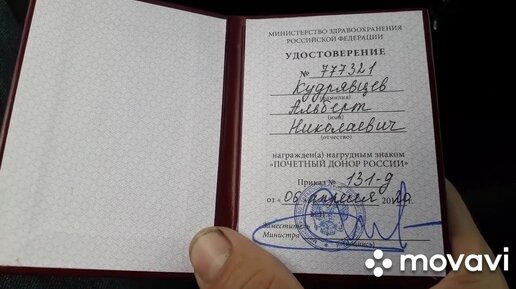 МИНИСТЕРСТВО ЗДРАВООХРАНЕНИЯ
РОССИЙСКОЙ ФЕДЕРАЦИИ
УДОСТОВЕРЕНИЕ
№ 777321
Кудрявцев
(фамилия)
Альберт
(имя)
Николаевич
(отчество)
награжден(а) нагрудным знаком
«ПОЧЕТНЫЙ ДОНОР РОССИИ»
Приказ № 131-д
от «06 апреля
Заместитель
Министра
(подпись)
movavi